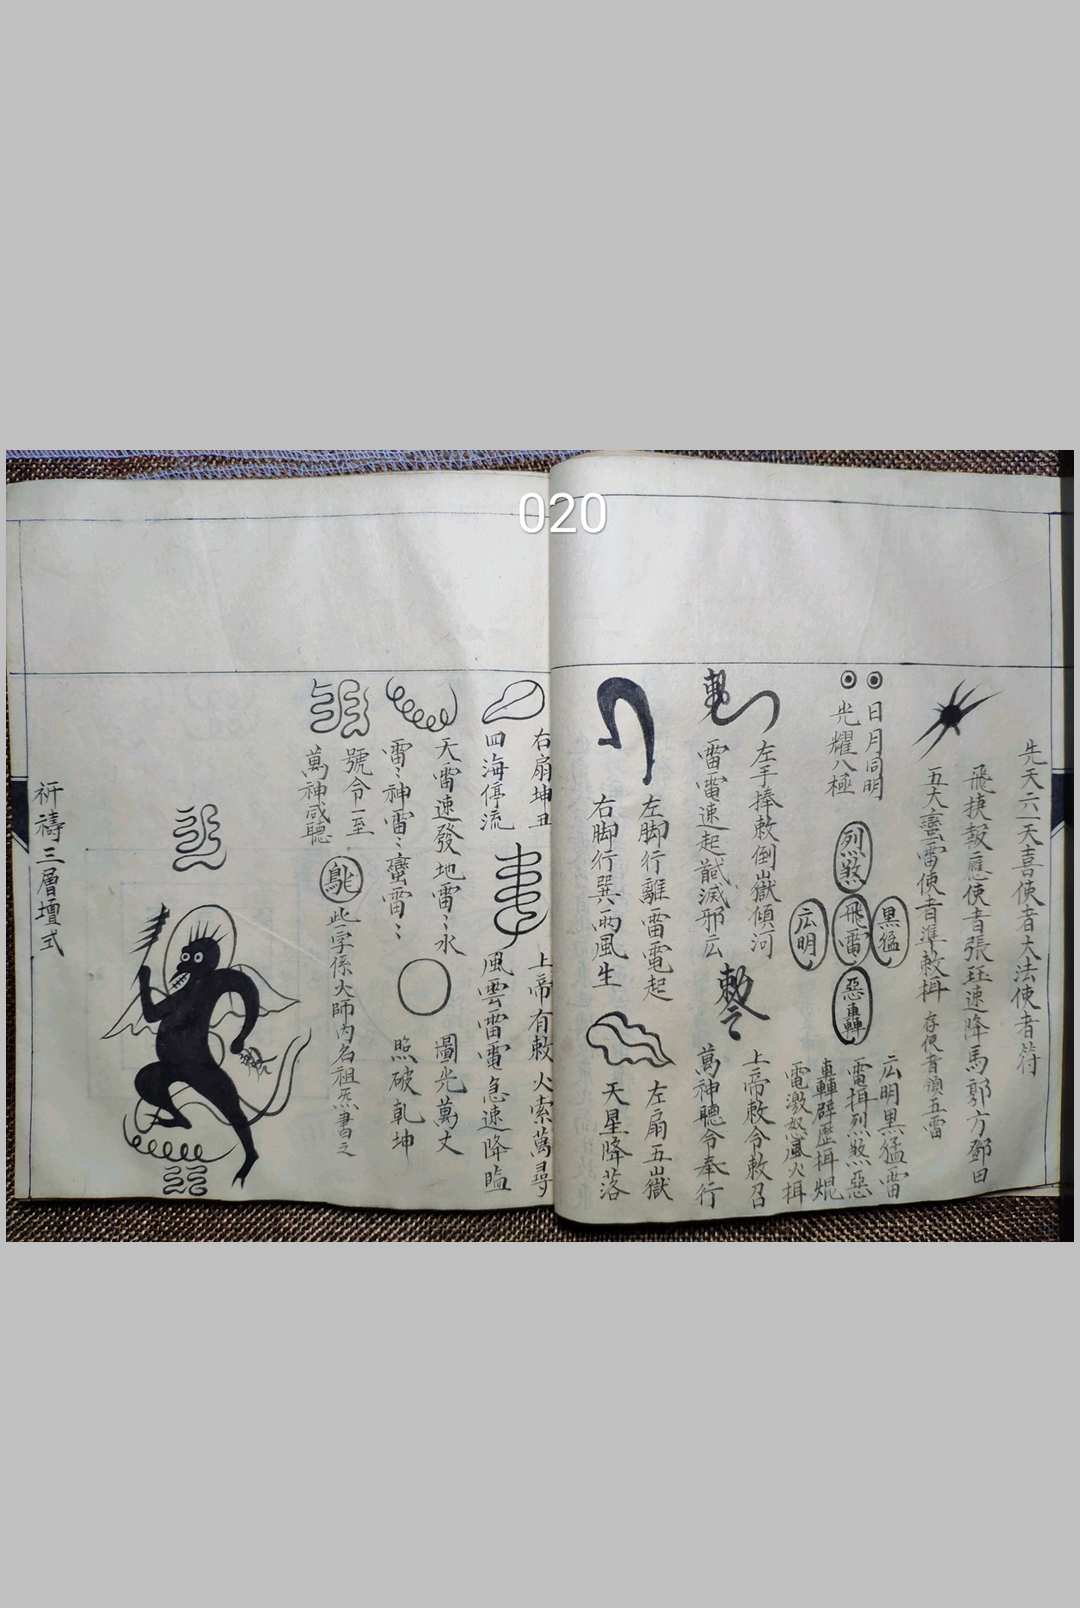 020
先天六一天喜使者大法使者符
飛捷報應使者張珏速降馬郭方鄧田
五大蠻雷使者準敕揖 存使者領五雷
日月同明
光耀八極
烈煞
黑猛
飛雷
広明
惡轟
広明黒猛雷
雷揖烈煞惡
轟轟霹靂揖焜
電激怒風火揖
左手捧敕倒嶽傾河
上帝敕令敕召
雷電速起馘滅邪広
敕令
萬神聽令奉行
左脚行離雷電起
右脚行巽雨風生
左扇五嶽
天星降落
右扇坤丑
四海停流
上帝有敕火索萬尋
風雲雷電急速降臨
天雷速發地雷〻水
雷〻神雷〻蠻雷〻
圓光萬丈
照破乾坤
號令一至
萬神咸聽
此字係火師內名祖炁書之
祈禱三層壇式